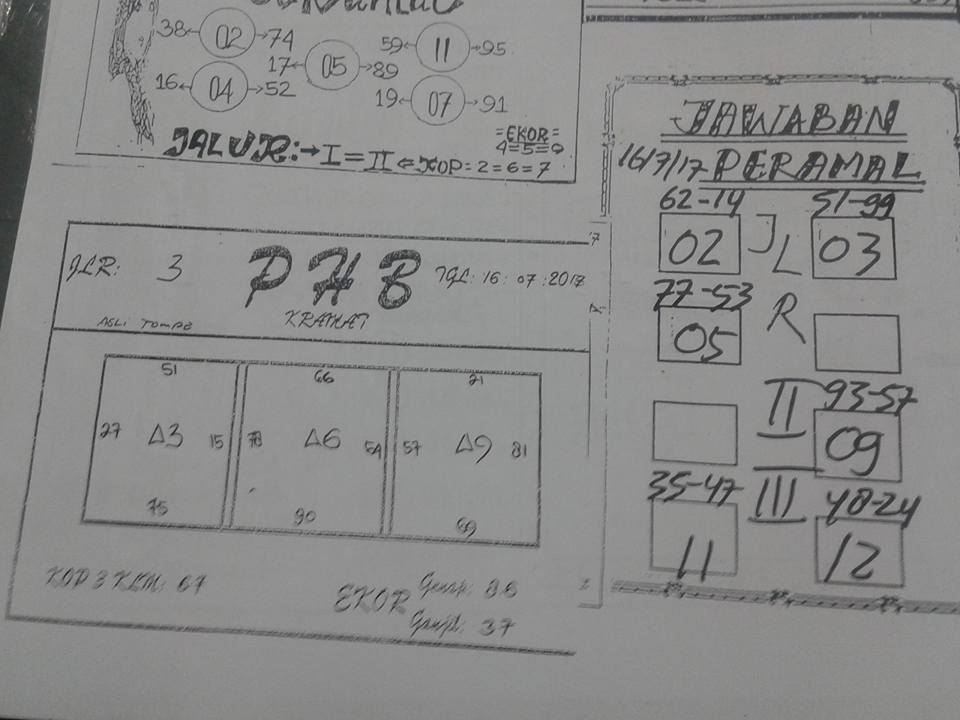 38 02 74
59 11 95
17 05 89
16 04 52
19 07 91
=EKOR=
JALUR: I = II KOP: 2 = 6 = 7
JLR: 3
PHB
TGL: 16: 07: 2017
KRAMAT
ASLI TOMPE
51
27 Δ3 15
75
66
78 Δ6 54
90
21
57 Δ9 81
69
KOP 3 KLM: 67
EKOR
Ganjil: 37
JAWABAN
16/7/17 PERAMAL
62-14 51-99
02 JL 03
77-53 R
05
II 93-57
09
35-47 III 48-24
11 12